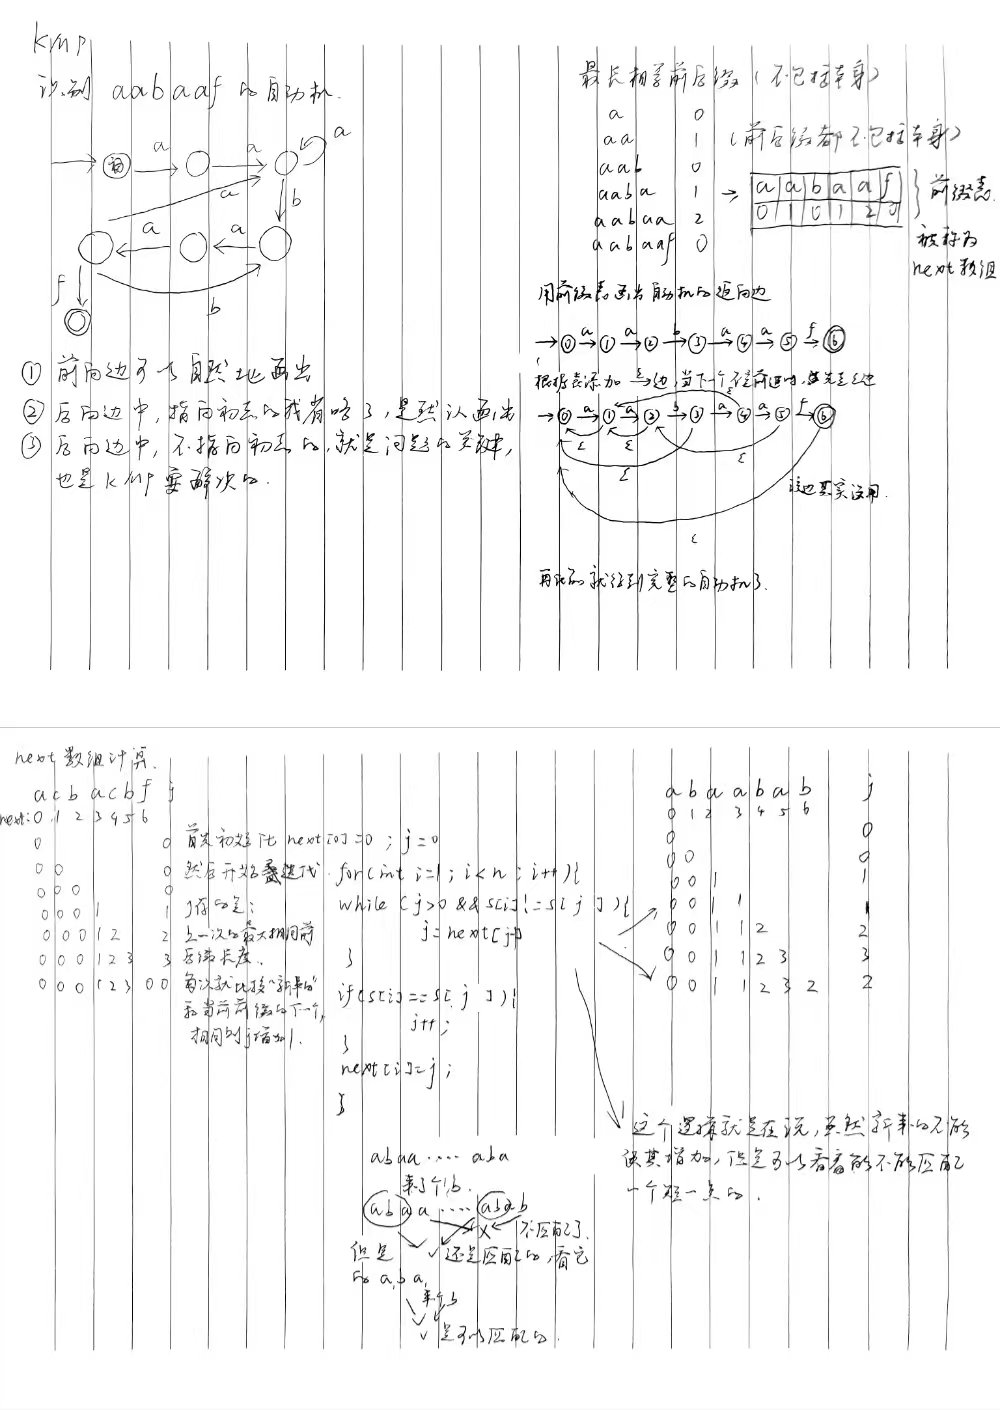 kmp
识别 aabaaf 的自动机.
初
a
a
a
a
b
a
a
f
b
① 前向边可以自然地画出
② 后向边中，指向初态的我省略了，是默认画出
③ 后向边中，不指向初态的，就是问题的关键，
也是KMP要解决的.
最长相等前后缀（不包括本身）
a 0
aa 1 （前后缀都不包括本身）
aab 0
aaba 1 → a a b a a f 前缀表
aabaa 2 0 1 0 1 2 0
aabaaf 0 被称为
next数组
用前缀表画出自动机的返回边
→ 0 a→ 1 a→ 2 b→ 3 a→ 4 a→ 5 f→ 6
根据表添加 ε→边，当下一个不是前进时，走ε边
→ 0 a→ 1 a→ 2 b→ 3 a→ 4 a→ 5 f→ 6
ε ε ε ε ε
ε
这边其实没用.
就得到完整的自动机了.
next 数组计算.
a c b a c b f j
next: 0 1 2 3 4 5 6
0 0
0 0 0
0 0 0 0
0 0 0 1 1
0 0 0 1 2 2
0 0 0 1 2 3 3
0 0 0 1 2 3 0 0
首先初始化 next[0]=0 ; j=0
然后开始迭代.
j存的是：
上一次的最大相同前
后缀长度.
每次就比较“新来的”
和当前前缀的下一个,
相同则j增加1.
for(int i=1; i<n; i++){
while (j>0 && s[i]!=s[j]){
j=next[j]
}
if(s[i]==s[j]){
j++;
}
next[i]=j;
}
a b a a b a b j
0 1 2 3 4 5 6
0 0
0 0 0
0 0 1 1
0 0 1 1 1
0 0 1 1 2 2
0 0 1 1 2 3 3
0 0 1 1 2 3 2 2
这个逻辑就是在说，虽然新来的不能
使其增加，但是可以看看能不能匹配
一个短一点的.
abaa ···· aba
来了个b.
abaa ···· abab
× 不匹配了.
但是 ✓ 还是匹配的，看它
的 a,b a,
来个b
✓ 是可以匹配的.